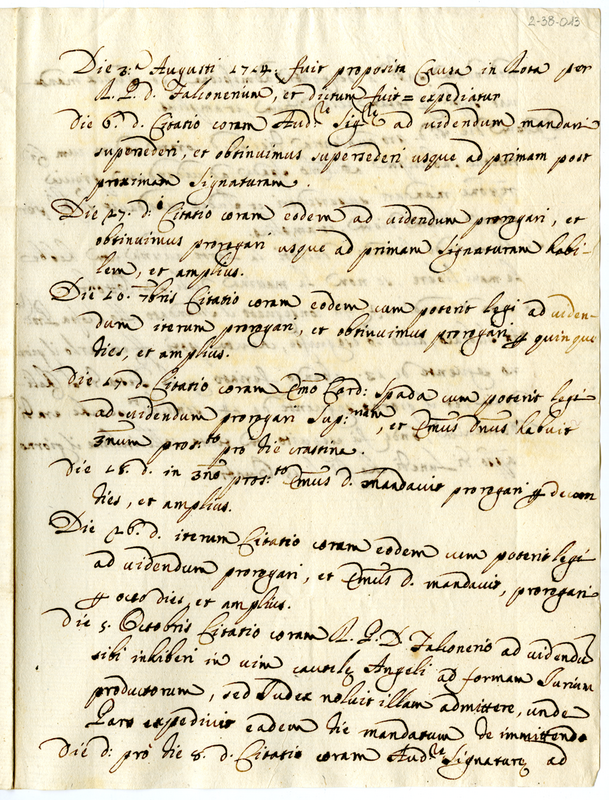 2-38-013
Die 3.a Augusti 1724. fuit proposita Causa in Rota per
R. P. d. Falconerium, et dictum fuit = expediatur
Die 6.a d. Citatio coram Aud.re Sig.re ad videndum mandari
supersederi, et obtinuimus supersederi usque ad primam post
proximam Signaturam.
Die 17. d. Citatio coram eodem ad videndum prorogari, et
obtinuimus prorogari usque ad primam Signaturam habi-
lem, et amplius.
Die 10. 7bris Citatio coram eodem cum poterit legi ad viden-
dum iterum prorogari, et obtinuimus prorogari quinque
dies, et amplius.
Die 17. d. Citatio coram Emo Card: Spada cum poterit legi
ad videndum prorogari, et Emus Dnus habuit
pro die crastina.
Die 18. d. in Emus d. mandavit prorogari decem
dies, et amplius.
Die 26. d. iterum Citatio coram eodem cum poterit legi
ad videndum prorogari, et Emus d. mandavit, prorogari
octo dies, et amplius.
Die 5. Octobris Citatio coram R. P. D. Falconerio ad videndu
sibi inhiberi in vim cautelę Angeli ad formam Iurium
productorum, sed Iudex noluit illam admittere, unde
Pars expedivit eadem die mandatum de immittendo
Die d: pro die 8. d. Citatio coram Aud.re Signaturę ad